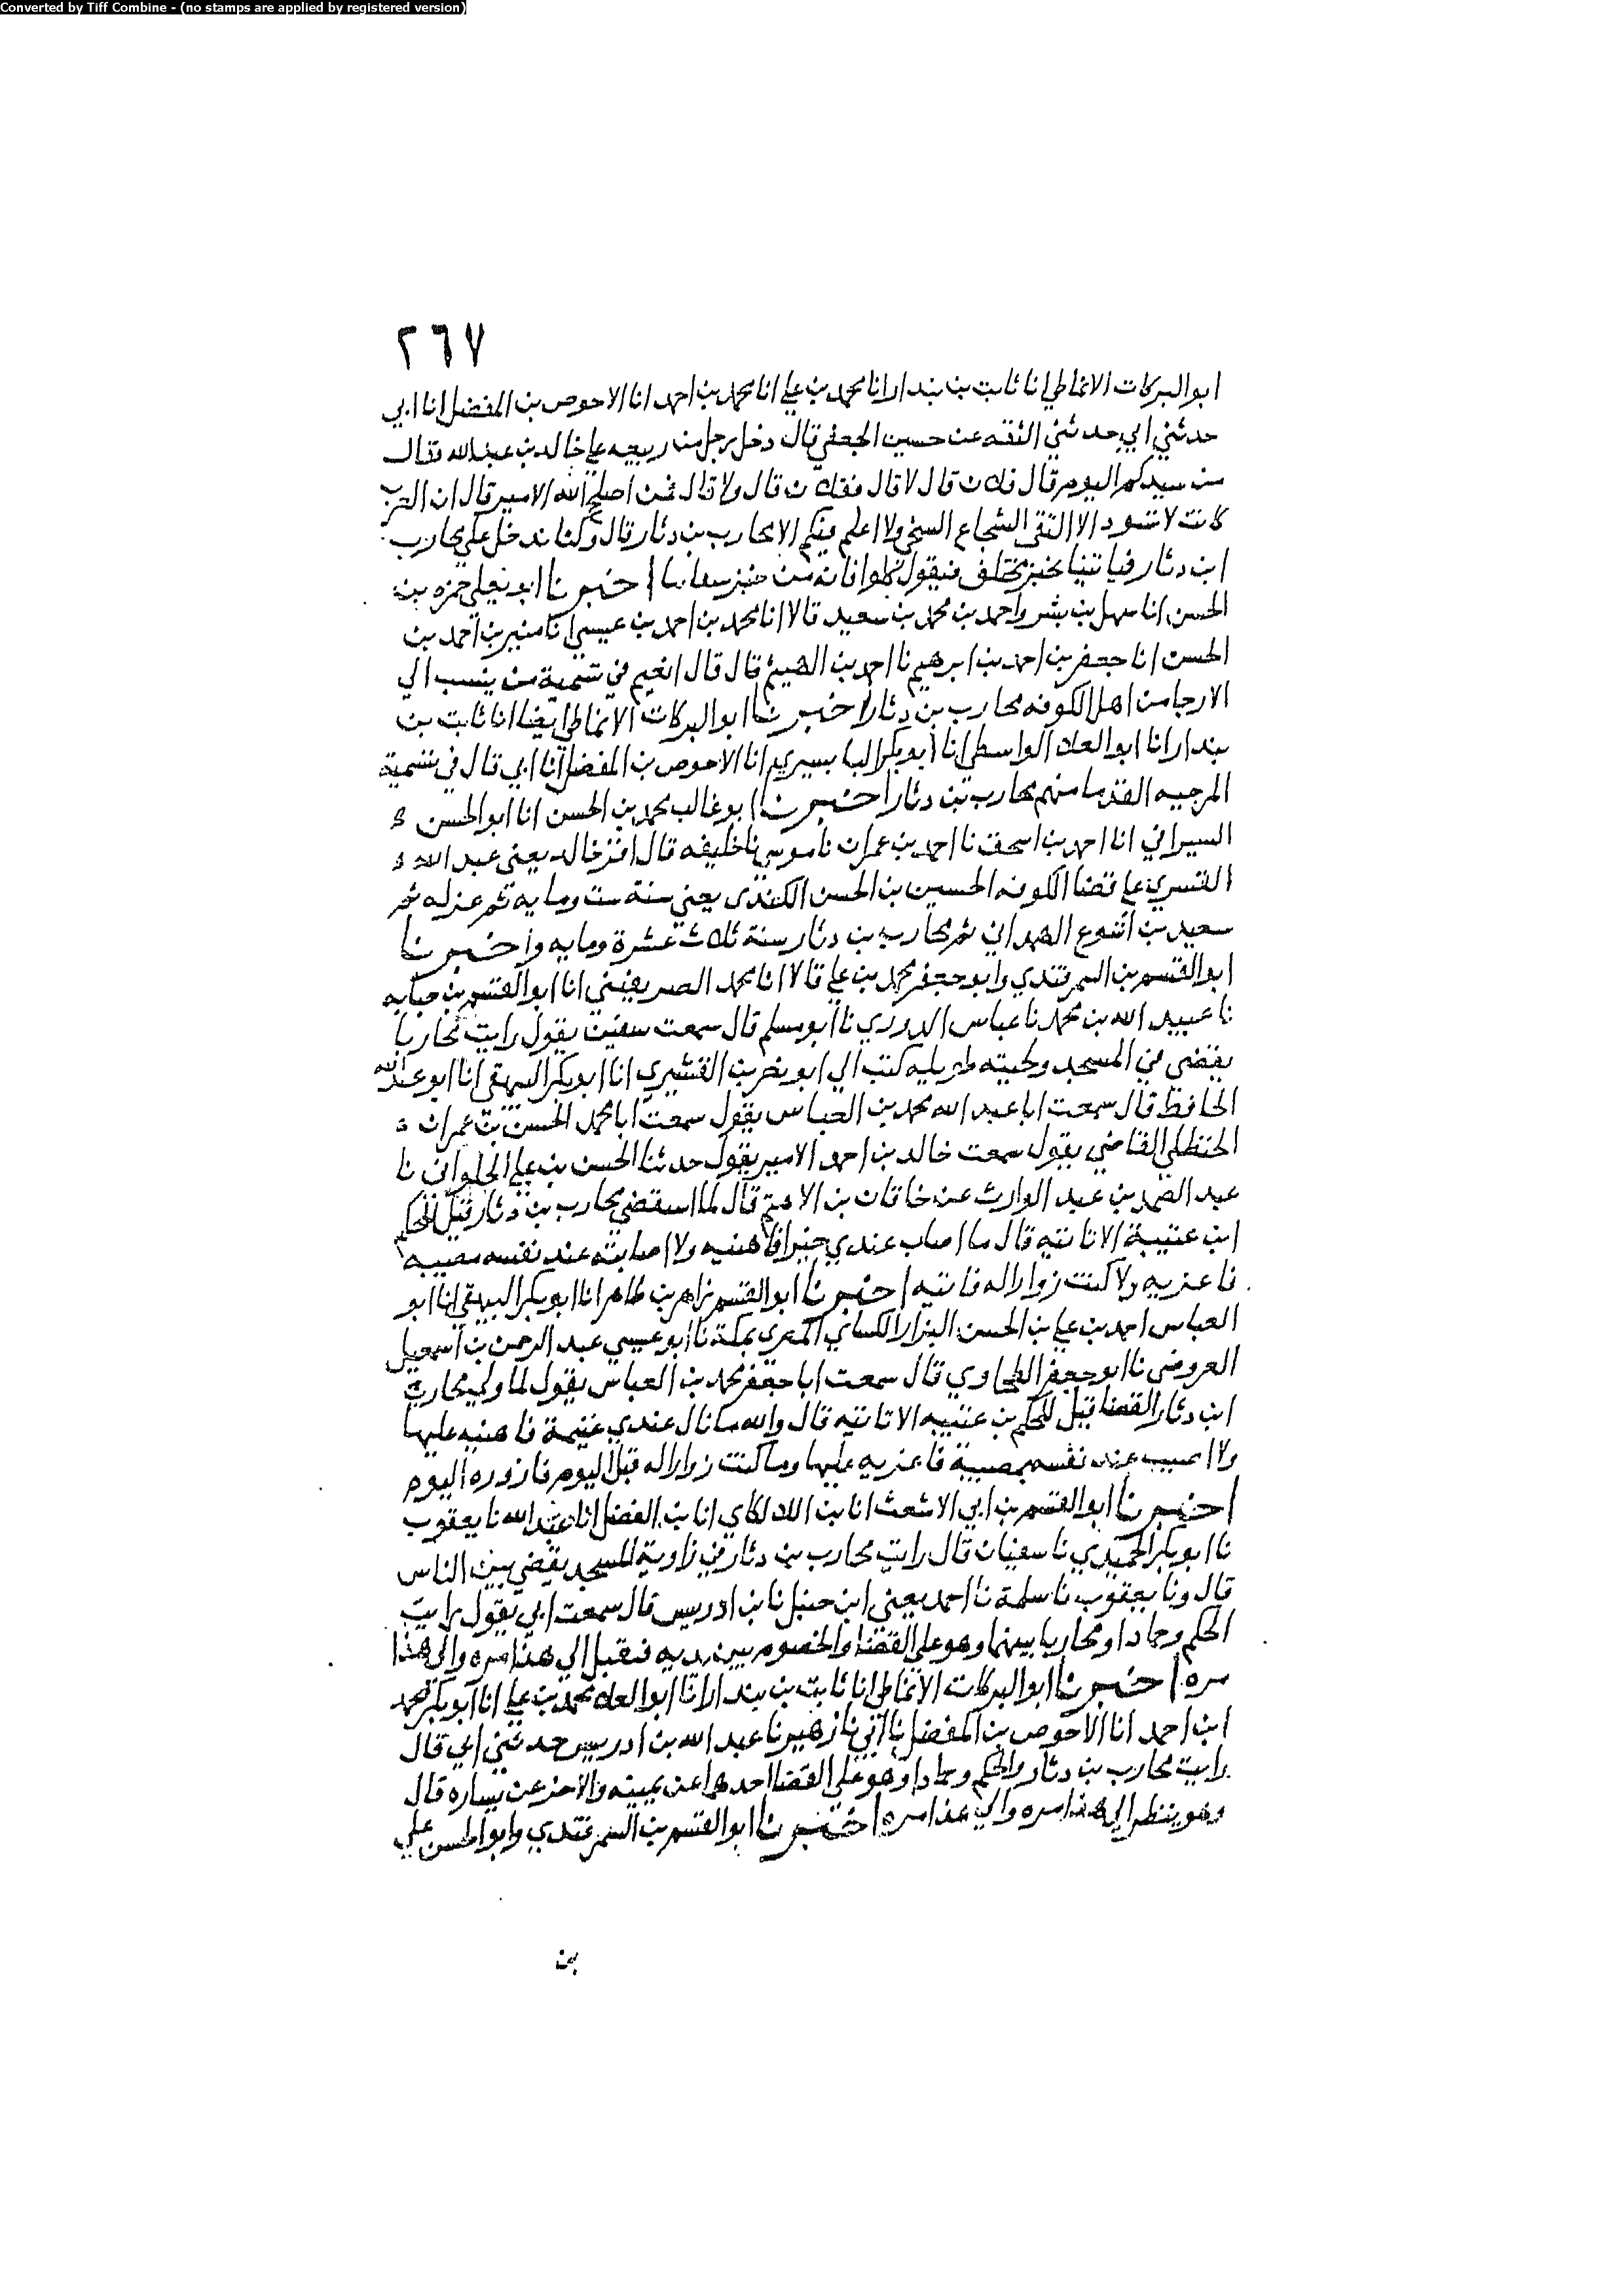 Converted by Tiff Combine - (no stamps are applied by registered version)
٢٦٧
ابو البركات الانماطي انا ثابت بن بندار انا محمد بن علي انا محمد بن احمد انا الاحوص بن المفضل انا ابي
حدثني ابي حدثني الثقه عن حسين الجعفي قال دخل رجل من ربيعه علي خالد بن عبد الله فقال
من سيدكم اليوم قال فلان قال لا قال ففلان قال ولا قال فمن اصلح الله الامير قال ان العرب
كانت لا تسود الا التقي الشجاع السخي ولا اعلم فيكم الا محارب بن دثار قال وكنا ندخل علي محارب
ابن دثار فياتينا بخبز مختلف فيقول كلوا فانه من خبز اخبرنا ابو يعلي حمزه بن
الحسن انا سهل بن بشر واحمد بن محمد بن سعيد قالا انا محمد بن احمد بن عيسي انا منير بن احمد بن
الحسن انا جعفر بن احمد بن ابرهيم نا احمد بن الهيثم قال قال ابو نعيم في تسمية من ينسب الي
الارجا من اهل الكوفه محارب بن دثار اخبرنا ابو البركات الانماطي ايضا انا ثابت بن
بندار انا ابو العلا الواسطي انا ابو بكر البابسيري انا الاحوص بن المفضل انا ابي قال في تسمية
المرجيه القدما منهم محارب بن دثار اخبرنا ابو غالب محمد بن الحسن انا ابو الحسن
السيرافي انا احمد بن اسحق نا احمد بن عمران نا موسي نا خليفه قال اقر خالد يعني عبد الله
القسري علي قضا الكوفه الحسين بن الحسن الكندي يعني سنة ست ومايه ثم عزله ثم
سعيد بن اشوع الهمداني ثم محارب بن دثار سنة ثلاث عشرة ومايه واخبرنا
ابو القسم بن السمرقندي وابو جعفر محمد بن علي قالا انا محمد الصريفيني انا ابو القسم بن حبابه
نا عبيد الله بن محمد نا عباس الدوري نا ابو مسلم قال سمعت سفين يقول رايت محاربا
يقضي في المسجد ولحيته طويله كتب الي ابو نصر بن القشيري انا ابو بكر البيهقي انا ابو عبد الله
الحافظ قال سمعت ابا عبد الله محمد بن العباس يقول سمعت ابا محمد الحسن بن عمران
الحنظلي القاضي يقول سمعت خالد بن احمد الامير يقول حدثنا الحسن بن علي الحلواني نا
عبد الصمد بن عبد الوارث عن خاقان بن الاهتم قال لما استقضي محارب بن دثار قيل للحكم
ابن عتيبة الا تاتيه قال ما اصاب عندي خيرا فاهنيه ولا اصابته عند نفسه مصيبه
فاعزيه ولا كنت زوارا له فاتيه اخبرنا ابو القسم زاهر بن طاهر انا ابو بكر البيهقي انا ابو
العباس احمد بن علي بن الحسن البزار الكساي المصري بمكة نا ابو عيسي عبد الرحمن بن اسمعيل
العروضي نا ابو جعفر الطحاوي قال سمعت ابا جعفر محمد بن العباس يقول لما ولي محارب
ابن دثار القضا قيل للحكم بن عتيبه الا تاتيه قال والله ما نال عندي غنيمة فاهنيه عليها
ولا اصيب عند نفسه بمصيبة فاعزيه عليها وما كنت زوارا له قبل اليوم فازوره اليوم
اخبرنا ابو القسم بن ابي الاشعث انا بن اللالكاي انا بن الفضل انا عبد الله نا يعقوب
نا ابو بكر الحميدي نا سفيان قال رايت محارب بن دثار في زاوية المسجد يقضي بين الناس
قال ونا يعقوب نا سلمة نا احمد يعني ابن حنبل نا بن ادريس قال سمعت ابي يقول رايت
الحكم وحمادا ومحاربا بينهما وهو علي القضا والخصوم بين يديه فيقبل الي هذا مره والي هذا
مره اخبرنا ابو البركات الانماطي انا ثابت بن بندار انا ابو العلا محمد بن علي انا ابو بكر محمد
ابن احمد انا الاحوص بن المفضل نا ابي نا زهير نا عبد الله بن ادريس حدثني ابي قال
رايت محارب بن دثار والحكم وحمادا وهو علي القضا احدهما عن يمينه والاخر عن يساره قال
وهو ينظر الي هذا مره والي هذا مره اخبرنا ابو القسم بن السمرقندي وابو الحسن علي
بن